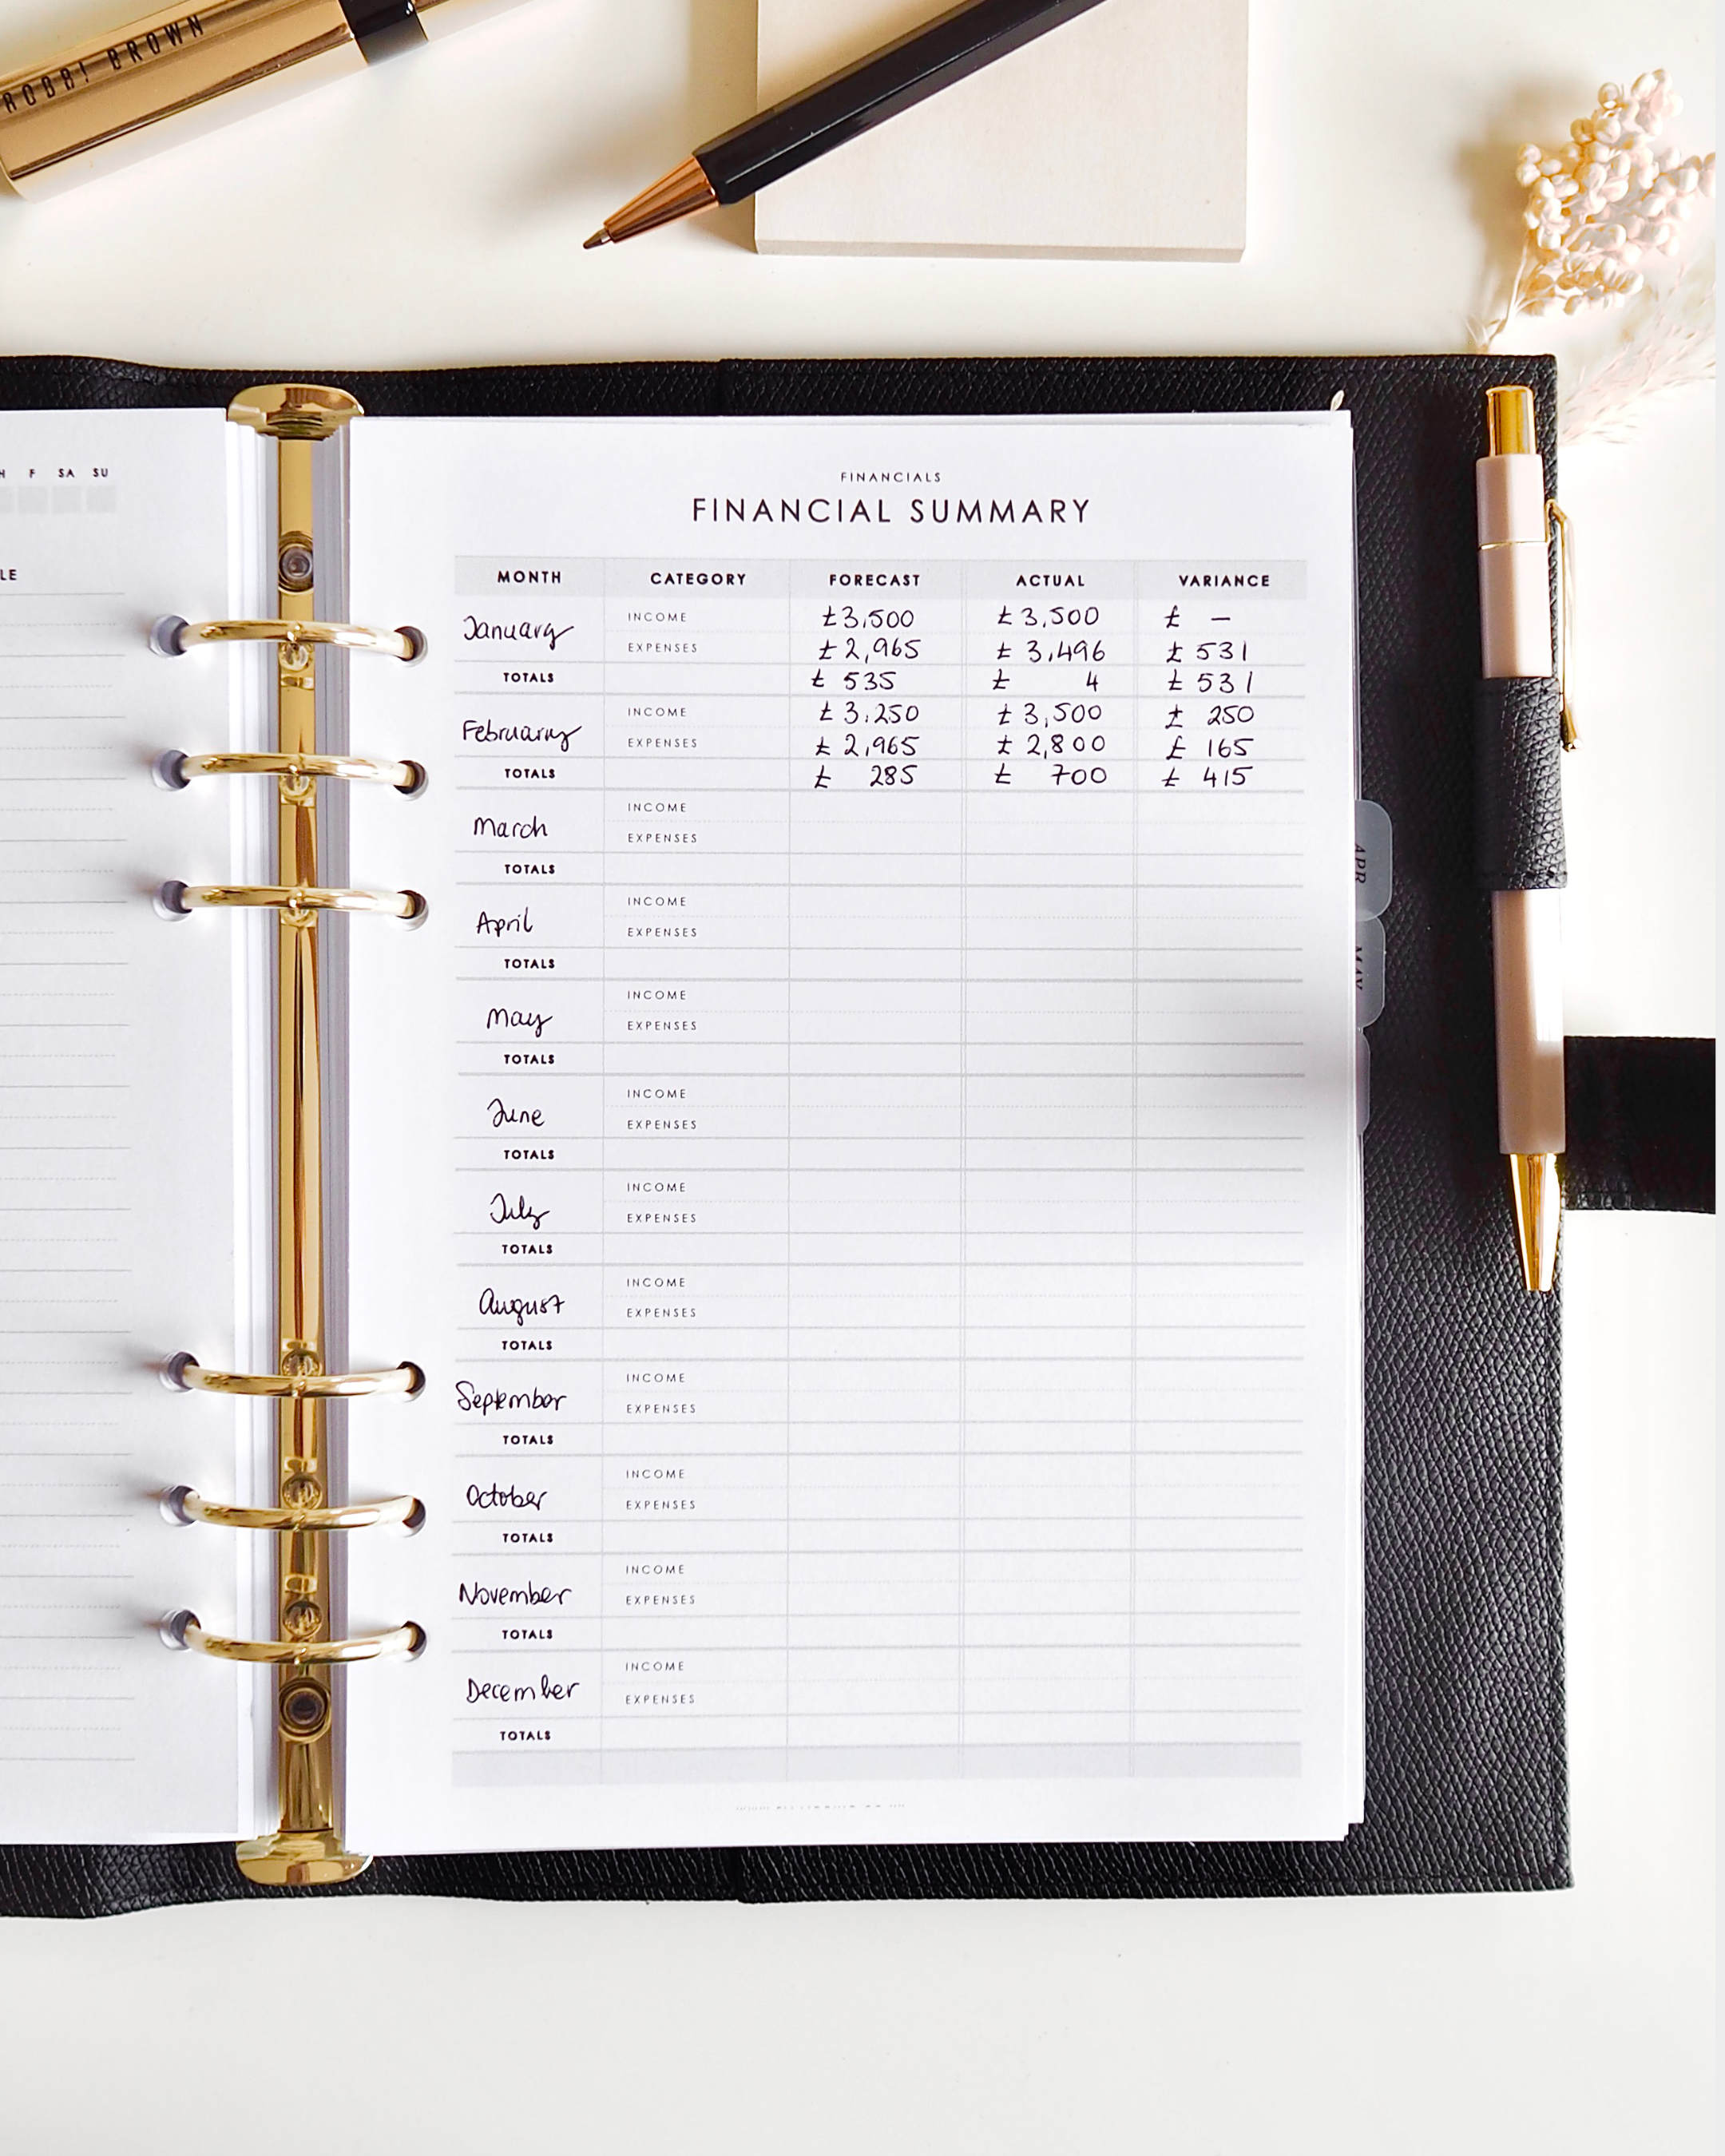 BOBBI BROWN
F SA SU
LE
FINANCIALS
FINANCIAL SUMMARY
MONTH CATEGORY FORECAST ACTUAL VARIANCE
January INCOME £3,500 £3,500 £ –
EXPENSES £2,965 £3,496 £531
TOTALS £535 £4 £531
February INCOME £3.250 £3,500 £250
EXPENSES £2,965 £2,800 £165
TOTALS £285 £700 £415
March INCOME
EXPENSES
TOTALS
APR
April INCOME
EXPENSES
TOTALS
MAY
May INCOME
EXPENSES
TOTALS
June INCOME
EXPENSES
TOTALS
July INCOME
EXPENSES
TOTALS
August INCOME
EXPENSES
TOTALS
September INCOME
EXPENSES
TOTALS
October INCOME
EXPENSES
TOTALS
November INCOME
EXPENSES
TOTALS
December INCOME
EXPENSES
TOTALS